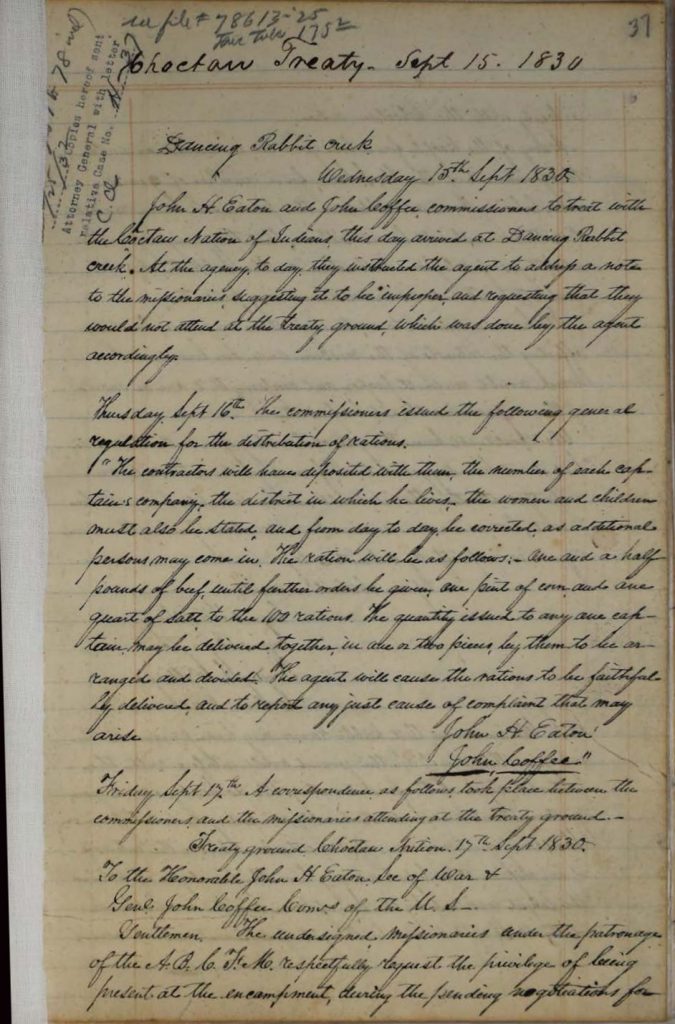 see file # 78613-25
37
Choctaw Treaty. Sept 15. 1830
Copies hereof sent
Attorney General with letter
relative Case No.
Dancing Rabbit creek
Wednesday 15th Sept 1830.
John H Eaton and John Coffee, commissioners to treat with
the Coctaw Nation of Indians, this day arrived at Dancing Rabbit
creek. At the agency, to day, they instructed the agent to address a note
to the missionaries, suggesting it to be improper, and requesting that they
would not attend at the treaty ground, which was done by the agent
accordingly.
Thursday Sept 16th. The commissioners issued the following general
regulation for the distribution of rations.
"The contractors will have deposited with them, the number of each cap-
tain's company. the district in which he lives, the women and children
must also be stated, and from day to day, be corrected, as additional
persons may come in. The ration will be as follows:- One and a half
pounds of beef, until further orders be given, one pint of corn, and one
quart of salt to the 100 rations. The quantity issued to any one cap-
tain, may be delivered together, in one or two pieces, by them to be ar-
ranged and divided. The agent will cause the rations to be faithful-
ly delivered, and to report any just cause of complaint that may
arise John H Eaton
John Coffee"
Friday Sept 17th. A correspondence as follows took place between the
commissioners, and the missionaries attending at the treaty ground.-
Treaty ground Choctaw Nation. 17th Sept 1830.
To the Honorable John H Eaton Sec of War &
Genl. John Coffee Comrs of the U. S.-
Gentlemen. The undersigned missionaries under the patronage
of the A. B. C. F. M. respectfully request the privilege of being
present at the encampment, during the pending negotiations for